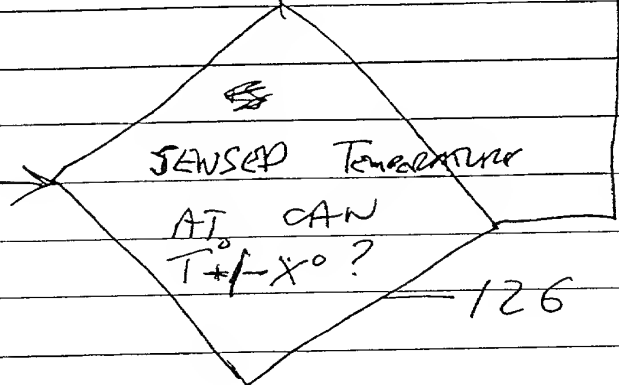 SENSED TEMPERATURE
AT CAN
T+/-X° ?
126